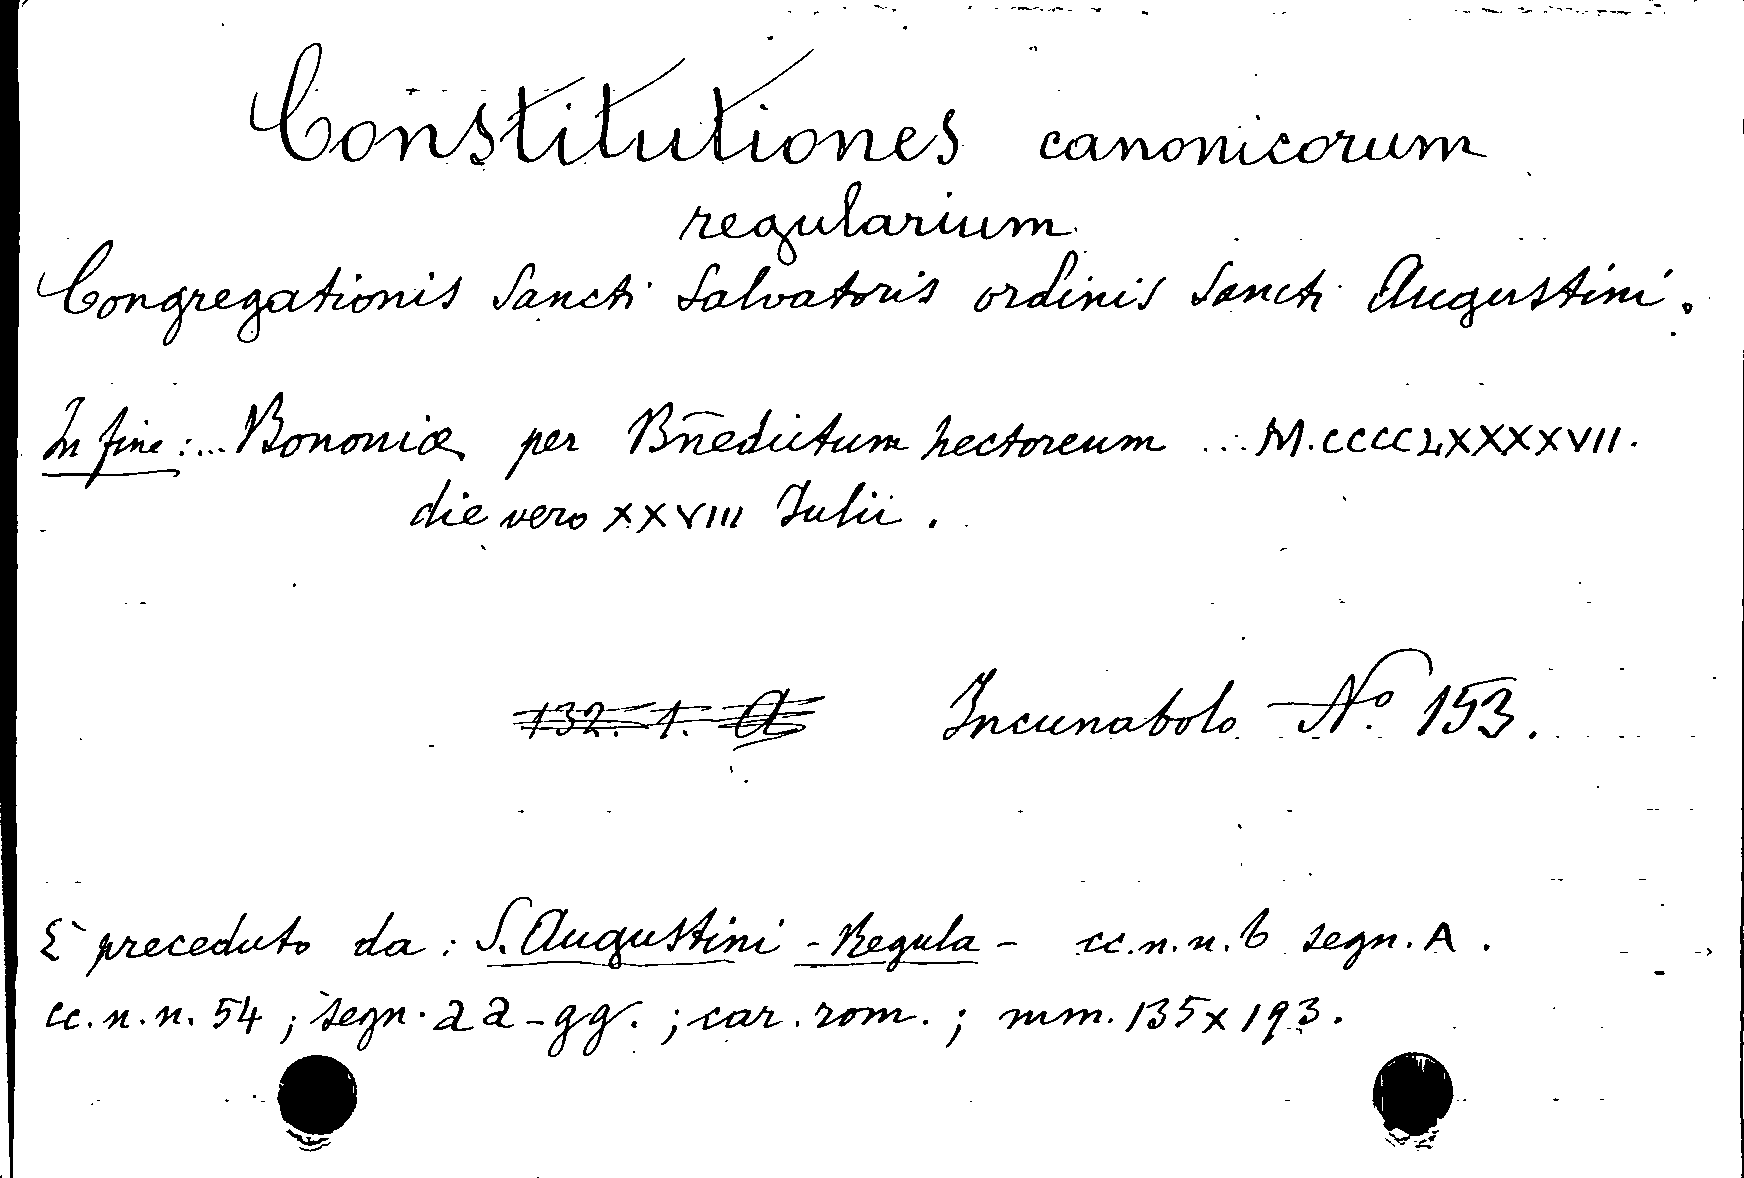 Constitutiones canonicorum
regularium
Congregationis Sancti Salvatoris ordinis Sancti Augustini.
In fine: ... Bononiæ per Bñedictum hectoreum ... M.CCCCLXXXXVII.
die vero XXVIII Julii.
132. 1. A Incunabolo Nº 153.
È preceduto da: S. Augustini - Regula - cc.n.n. 6 segn. A.
cc. n. n. 54; segn. aa-gg.; car. rom.; mm. 135x193.